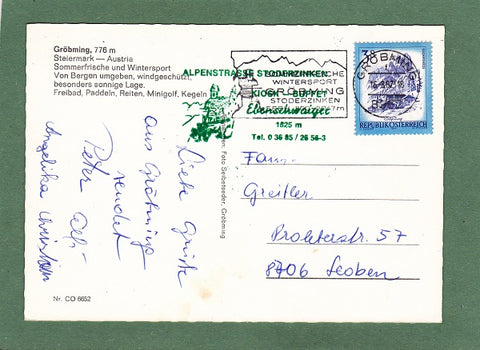 Gröbming, 776 m
Steiermark — Austria
Sommerfrische und Wintersport
Von Bergen umgeben, windgeschützt,
besonders sonnige Lage.
Freibad, Paddeln, Reiten, Minigolf, Kegeln
ALPENSTRASSE STODERZINKEN
KIOSK - BUFFET
Ebenschwaiger
1825 m
Tel. 0 36 85 / 26 56-3
WINTERSPORT
GRÖBMING
STODERZINKEN
GRÖBMING
REPUBLIK ÖSTERREICH
Liebe Grüße
aus Gröbming
sendet
Peter
Angelika Christian
Foto Seibetseder, Gröbming
Fam.
Greitler
Proleterstr. 57
8706 Leoben
Nr. CO 6652